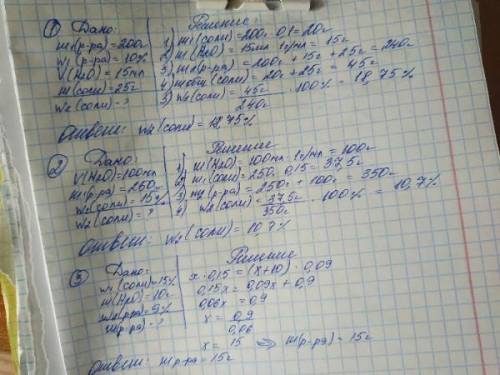 ① Дано:
m₁(р-ра)=200г
w₁(р-ра)=10%
V(H₂O)=15мл
m(соли)=25г
w₂(соли)-?
Решение:
1) m₁(соли)=200г·0,1=20г
2) m(H₂O)=15мл·1г/мл=15г
3) m₂(р-ра)=200г+15г+25г=240г
4) mобщ(соли)=20г+25г=45г
5) w₂(соли)=45г/240г·100%=18,75%
Ответ: w₂(соли)=18,75%
② Дано:
V(H₂O)=100мл
m₁(р-ра)=250г
w₁(соли)=15%
w₂(соли)=?
Решение
1) m(H₂O)=100мл·1г/мл=100г
2) m₁(соли)=250·0,15=37,5г
3) m₂(р-ра)=250г+100г=350г
4) w₂(соли)=37,5г/350г·100%=10,7%
Ответ: w₂(соли)=10,7%
③ Дано:
w₁(соли)=15%
m(H₂O)=10г
w₂(р-ра)=9%
m(р-ра)-?
Решение
x·0,15=(x+10)·0,09
0,15x=0,09x+0,9
0,06x=0,9
x=0,9/0,06
x=15 ⇒ m(р-ра)=15г
Ответ: m р-ра=15г